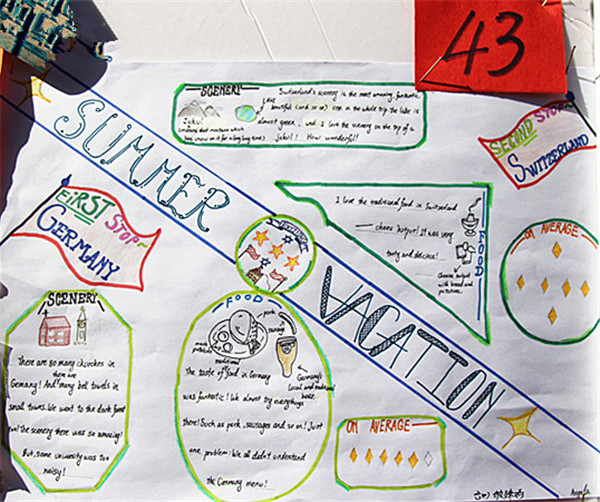 43
SUMMER
VACATION
SCENERY
Switzerland's scenery is the most amazing, fantastic,
beautiful (and so on) one in the whole trip. The lake is
almost green, and I love the scenery on the top of a
Joku! How wonderful!
Joku!
(means that mountain which
has snow on it for a long long time)
SECOND STOP~
SWITZERLAND
FIRST STOP~
GERMANY
I love the traditional food in Switzerland
cheese hotpot! It was very
tasty and delicious!
FOOD
Cheese hotpot
with bread and
potatoes.
ON AVERAGE
SCENERY
There are so many churches in
there are
Germany! And many bell towers in
small towns. We went to the dark forest
too! The scenery there was so amazing!
But, some university was too
noisy!
FOOD
pork
sausage
traditional
Germany's
local and
beer
The taste of food in Germany
was fantastic! We almost try everything
there! Such as pork, sausages and so on! Just
one problem: We all didn't understand
the Germany menu!
ON AVERAGE
Angela